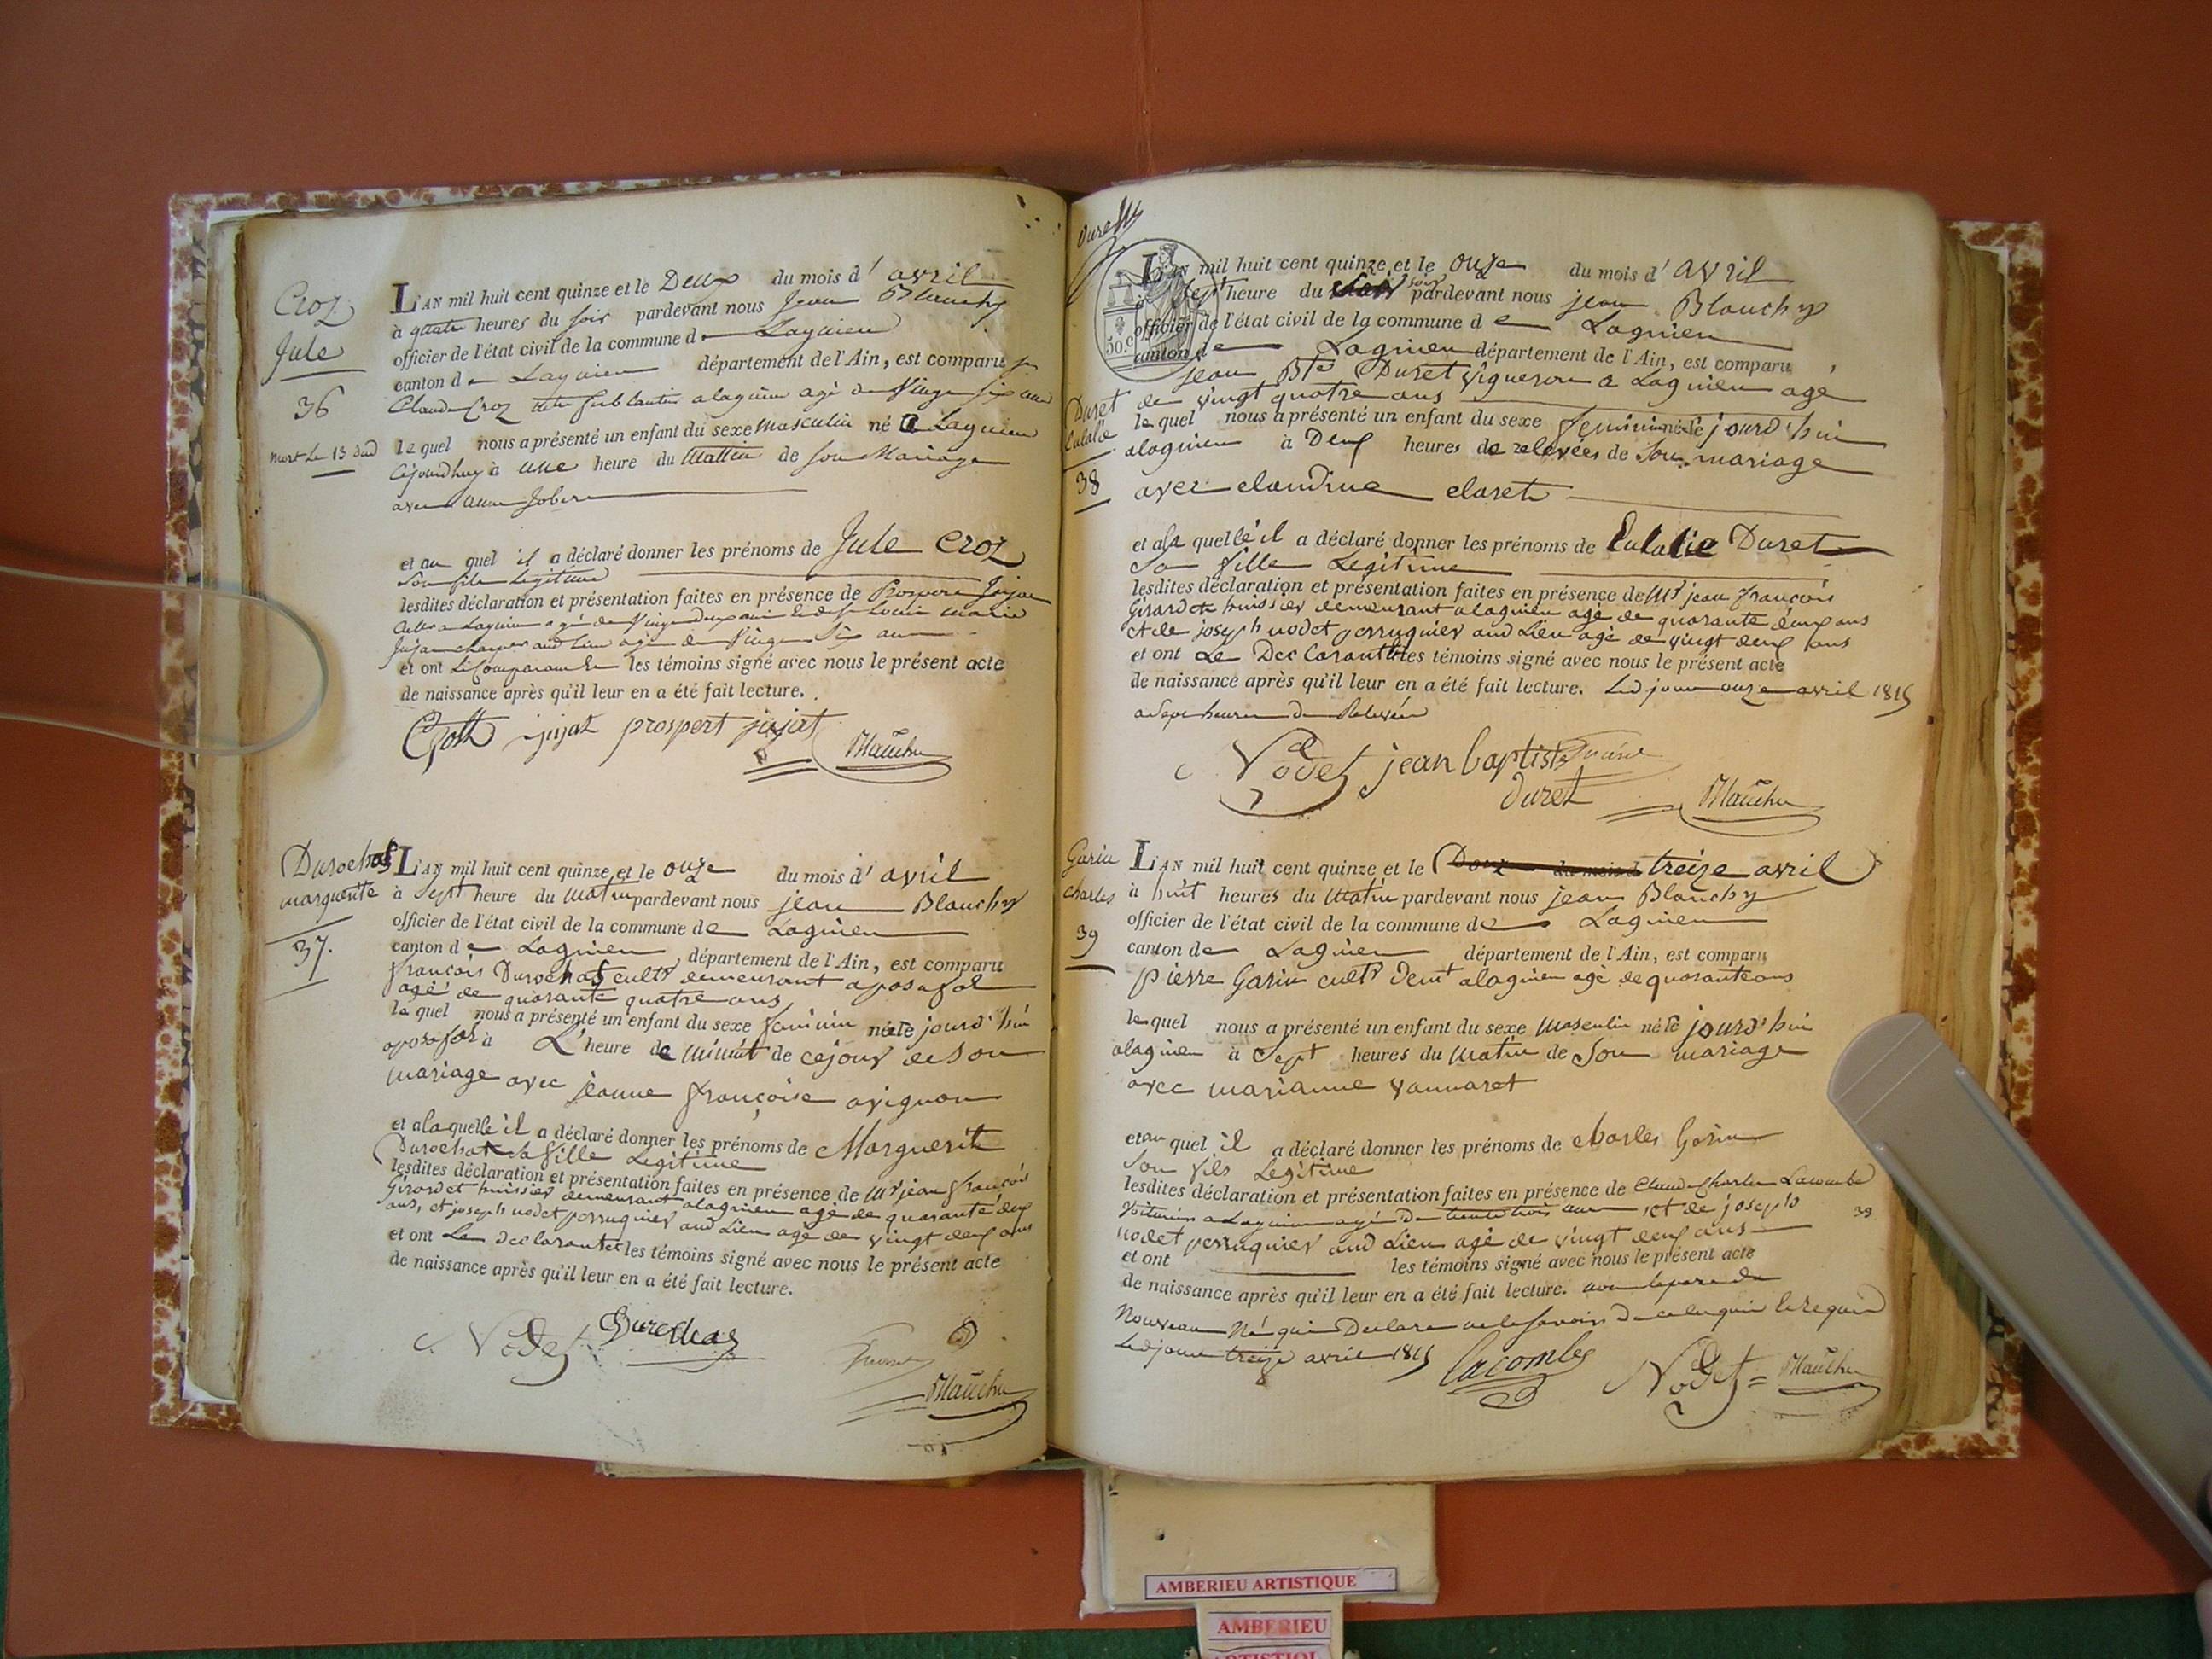 Croz
Jule
36
mort le 13 dud
L'AN mil huit cent quinze et le Deux du mois d' avril
à quatre heures du soir pardevant nous Jean Blanchy
officier de l'état civil de la commune de Lagnieu
canton de Lagnieu département de l'Ain, est comparu
Claude Croz ferblantier a lagnieu agé de vingt six ans
le quel nous a présenté un enfant du sexe masculin né a Lagnieu
cejourdhuy à une heure du Mattin de son Mariage
avec anne
et au quel il a déclaré donner les prénoms de Jule Croz
Son fils Legitime
lesdites déclaration et présentation faites en présence de Prospere Jujat
a Lagnieu agé de vingt deux ans Et de Louis marie
Jujat aud lieu agé de vingt six ans
et ont le Comparant Et les témoins signé avec nous le présent acte
de naissance après qu'il leur en a été fait lecture.
Croz jujat prospert jujat Blanchy
Durochat
marguerite
37.
L'AN mil huit cent quinze et le onze du mois d' avril
à Sept heure du Matin pardevant nous jean Blanchy
officier de l'état civil de la commune de Lagnieu
canton de Lagnieu département de l'Ain, est comparu
françois Durochat cultr demeurant a posafol
agé de quarante quatre ans
le quel nous a présenté un enfant du sexe feminin née le jourd'hui
aposafol à L'heure de Minuit de cejour de Son
mariage avec jeanne françoise avignon
et a laquelle il a déclaré donner les prénoms de Marguerite
Durochat Sa fille Legitime
lesdites déclaration et présentation faites en présence de Mr jean françois
Girardet huissier demeurant alagnieu agé de quarante deux
ans, et joseph nodet perruquier aud Lieu agé de vingt deux ans
et ont Le declarant et les témoins signé avec nous le présent acte
de naissance après qu'il leur en a été fait lecture.
Nodet Durochat
Blanchy
Duret
50.c
L'AN mil huit cent quinze et le onze du mois d' avril
à Sept heure du soir pardevant nous jean Blanchy
officier de l'état civil de la commune de Lagnieu
canton de Lagnieu département de l'Ain, est comparu
jean Bte Duret vigneron a Lagnieu agé
de vingt quatre ans
Duret
Eulalie
38
le quel nous a présenté un enfant du sexe feminin née le jourd'hui
alagnieu à Deux heures de relevées de Son mariage
avec claudine claret
et a la quelle il a déclaré donner les prénoms de Eulalie Duret
Sa fille Legitime
lesdites déclaration et présentation faites en présence de Mr jean françois
Girardet huissier demeurant alagnieu agé de quarante deux ans
et de joseph nodet perruquier aud Lieu agé de vingt deux ans
et ont Le Declarant et les témoins signé avec nous le présent acte
de naissance après qu'il leur en a été fait lecture. Led jour onze avril 1815
a Sept heures de Relevée
Nodet jean baptiste
duret Blanchy
Garin
charles
39
L'AN mil huit cent quinze et le Douze du mois d treize avril
à huit heures du Matin pardevant nous jean Blanchy
officier de l'état civil de la commune de Lagnieu
canton de Lagnieu département de l'Ain, est comparu
pierre Garin cultr demt alagnieu agé de quarante ans
le quel nous a présenté un enfant du sexe Masculin né le jourd'hui
alagnieu à Sept heures du Matin de Son mariage
avec marianne vannaret
et au quel il a déclaré donner les prénoms de charles Garin
Son fils Legitime
lesdites déclaration et présentation faites en présence de Claude Charles Lacombe
voiturier a Lagnieu agé De trente trois ans et de joseph
nodet perruquier aud Lieu agé de vingt deux ans
39
et ont les témoins signé avec nous le présent acte
de naissance après qu'il leur en a été fait lecture. non le pere du
Nouveau Né qui Declare ne le savoir de ce enquis Et requis
Led jour treize avril 1815 Lacombe Nodet Blanchy
AMBERIEU ARTISTIQUE
AMBERIEU
ARTISTIQUE